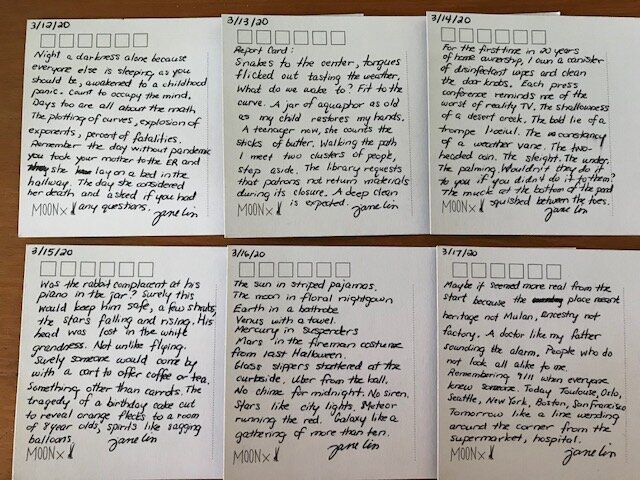 3/12/20
Night a darkness alone because
everyone else is sleeping as you
should be, awakened to a childhood
panic. Count to occupy the mind.
Days too are all about the math
The plotting of curves, explosion of
exponents, percent of fatalities.
Remember the day without pandemic
you took your mother to the ER and
she lay on a bed in the
hallway. The day she considered
her death and asked if you had
any questions. Jane Lin
MOON X
3/13/20
Report Card:
Snakes to the center, tongues
flicked out tasting the weather.
What do we wake to? Fit to the
curve. A jar of aquaphor as old
as my child restores my hands.
A teenager now, she counts the
sticks of butter. Walking the path
I meet two clusters of people,
step aside. The library requests
that patrons not return materials
during its closure. A deep clean
is expected. Jane Lin
MOON X
3/14/20
For the first time in 20 years
of home ownership, I own a canister
of disinfectant wipes and clean
the door knobs. Each press
conference reminds me of the
worst of reality TV. The shallowness
of a desert creek. The bold lie of a
trompe l'oeil. The constancy
of a weather vane. The two-
headed coin. The sleight. The under.
The palming. Wouldn't they do it
to you if you didn't do it to them?
The muck at the bottom of the pond
squished between the toes.
Jane Lin
MOON X
3/15/20
Was the rabbit complacent at his
piano in the jar? Surely this
would keep him safe, a few shrubs,
the stars falling and rising. His
head was lost in the white
grandness. Not unlike flying.
Surely someone would come by
with a cart to offer coffee or tea.
Something other than carrots. The
tragedy of a birthday cake cut
to reveal orange flecks to a room
of 8 year olds, spirits like sagging
balloons. Jane Lin
MOON X
3/16/20
The sun in striped pajamas.
The moon in floral nightgown
Earth in a bathrobe
Venus with a towel
Mercury in suspenders
Mars in the fireman costume
from last Halloween.
Glass slippers shattered at the
curbside. Uber from the ball.
No chime for midnight. No siren.
Stars like city lights. Meteor
running the red. Galaxy like a
gathering of more than ten.
Jane Lin
MOON X
3/17/20
Maybe it seemed more real from the
start because the place meant
heritage not Mulan, ancestry not
factory. A doctor like my father
sounding the alarm. People who do
not look all alike to me.
Remembering 9/11 when everyone
knew someone. Today Toulouse, Oslo,
Seattle, New York, Boston, San Francisco
Tomorrow like a line wending
around the corner from the
supermarket, hospital.
Jane Lin
MOON X